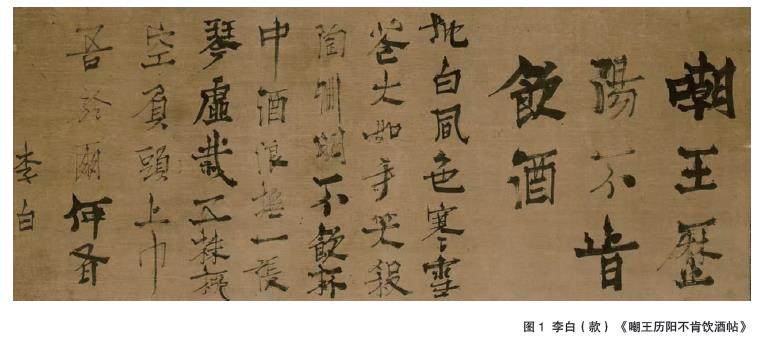 嘲王歷
陽不肯
飲酒
地白風色寒雪
花大如手笑殺
陶淵明不飲杯
中酒浪撫一張
琴虛栽五株柳
空負頭上巾
吾於爾何有
李白
图 1 李白（款）《嘲王历阳不肯饮酒帖》